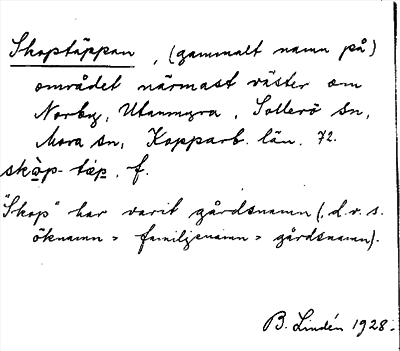 Skoptäppan, (gammalt namn på)
området närmast väster om
Norby, Utanmyra, Sollerö sn,
Mora sn, Kopparb. län. 72.
skop-täp. f.
"Skop" har varit gårdsnamn (, d. v. s.
öknamn = familjenamn = gårdsnamn).
B. Lindén 1928.